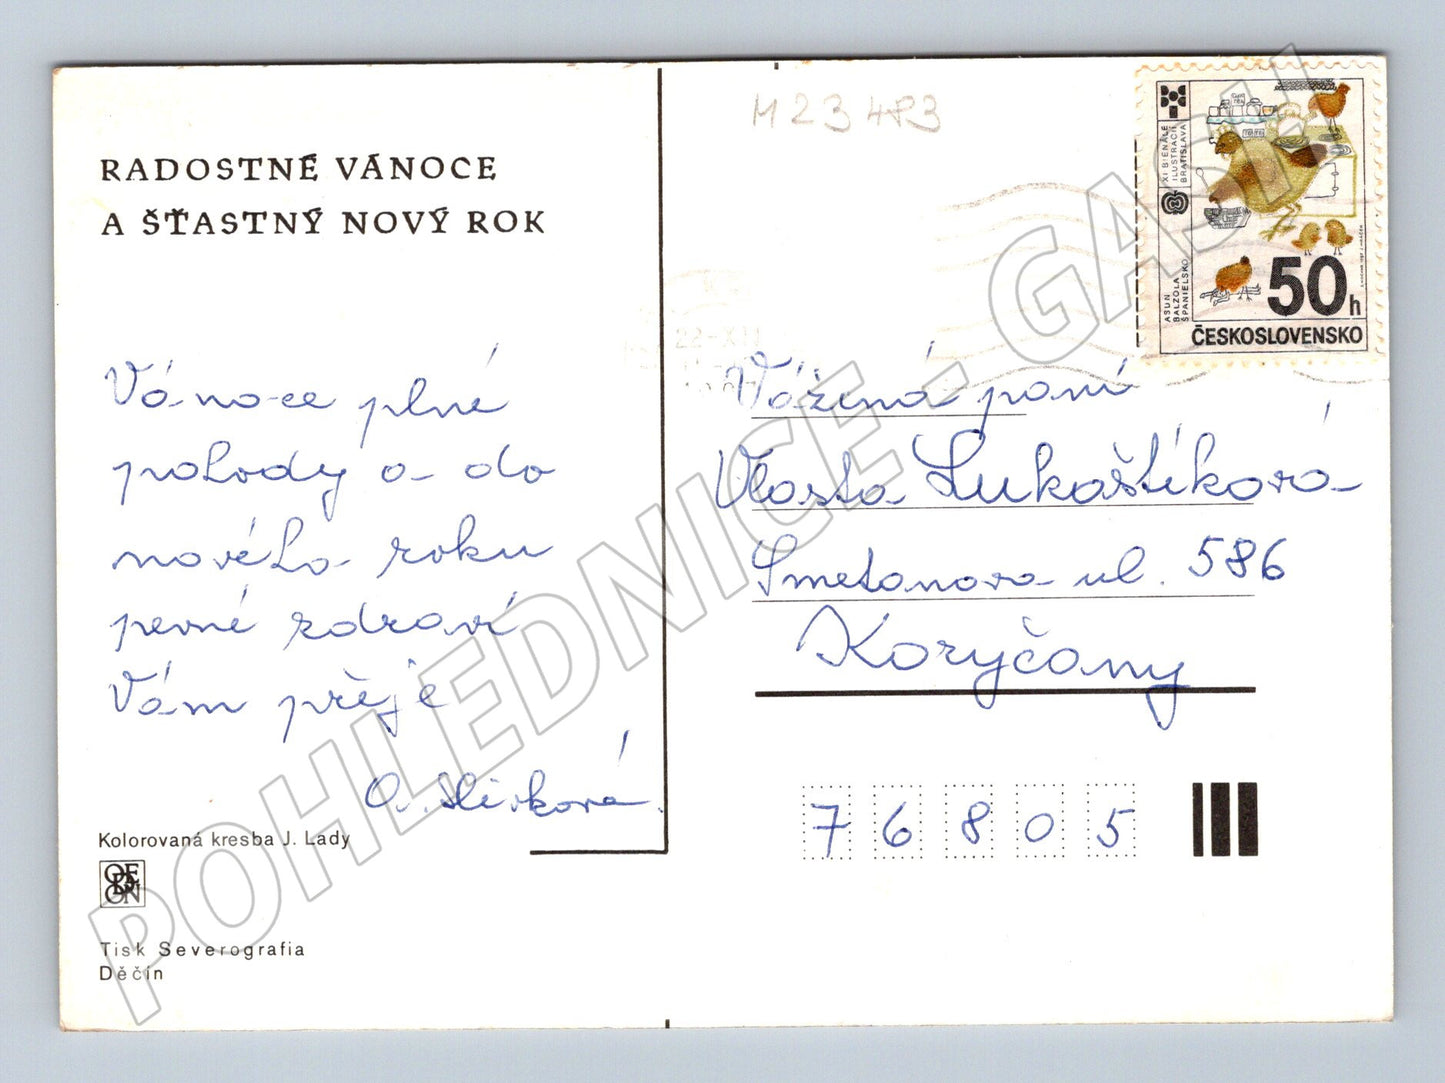 RADOSTNÉ VÁNOCE
A ŠŤASTNÝ NOVÝ ROK
Vánoce plné
pohody a do
nového roku
pevné zdraví
Vám přeje
Kolorovaná kresba J. Lady
ODEON
Tisk Severografia
Děčín
M 23 483
XI BIENÁLE
ILUSTRÁCIÍ
BRATISLAVA
ASUN
BALZOLA
ŠPANIELSKO
50h
ČESKOSLOVENSKO
22-XII
Vážená paní
Vlasta Lukaštíková
Smetanova ul. 586
Koryčany
76805
POHLEDNICE - GASU